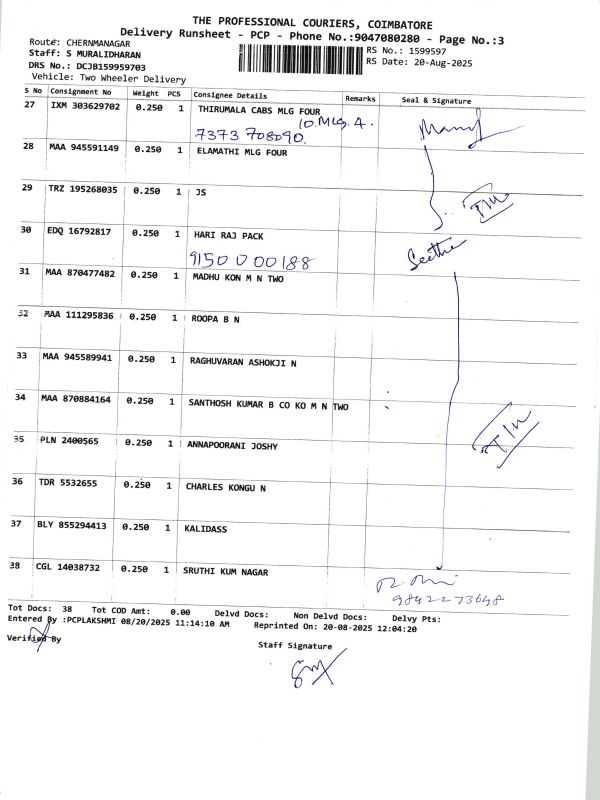 THE PROFESSIONAL COURIERS, COIMBATORE
Delivery Runsheet - PCP - Phone No.:9047080280 - Page No.:3
Route: CHERNMANAGAR
RS No.: 1599597
Staff: S MURALIDHARAN
RS Date: 20-Aug-2025
DRS No.: DCJB159959703
Vehicle: Two Wheeler Delivery
S No Consignment No Weight PCS Consignee Details Remarks Seal & Signature
27 IXM 303629702 0.250 1 THIRUMALA CABS MLG FOUR
10.Mlg.4.
7373 708090.
28 MAA 945591149 0.250 1 ELAMATHI MLG FOUR
29 TRZ 195268035 0.250 1 JS
30 EDQ 16792817 0.250 1 HARI RAJ PACK
Seetha
9150 000188
31 MAA 870477482 0.250 1 MADHU KON M N TWO
32 MAA 111295836 0.250 1 ROOPA B N
33 MAA 945589941 0.250 1 RAGHUVARAN ASHOKJI N
34 MAA 870884164 0.250 1 SANTHOSH KUMAR B CO KO M N TWO
35 PLN 2400565 0.250 1 ANNAPOORANI JOSHY
36 TDR 5532655 0.250 1 CHARLES KONGU N
37 BLY 855294413 0.250 1 KALIDASS
38 CGL 14038732 0.250 1 SRUTHI KUM NAGAR
9842273648
Tot Docs: 38 Tot COD Amt: 0.00 Delvd Docs: Non Delvd Docs: Delvy Pts:
Entered By :PCPLAKSHMI 08/20/2025 11:14:10 AM Reprinted On: 20-08-2025 12:04:20
Verified By
Staff Signature